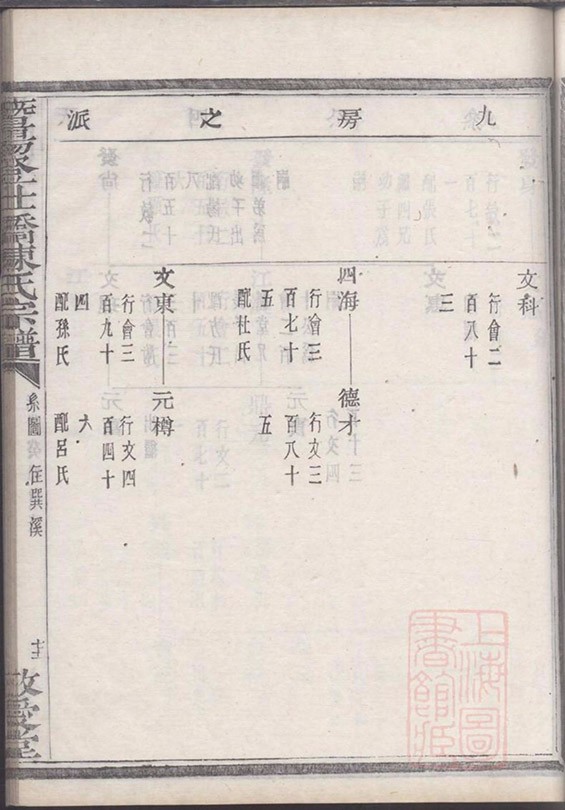 九房之派
文科
行會二
百八十
三
四海
行會三
百七十
五
配杜氏
德才
行文三
百八十
五
文東
行會三
百九十
四
配孫氏
元樽
行文四
百四十
六
配呂氏
橋陳氏宗譜
系圖
住巽溪
十三
敬愛堂
上海圖書館藏